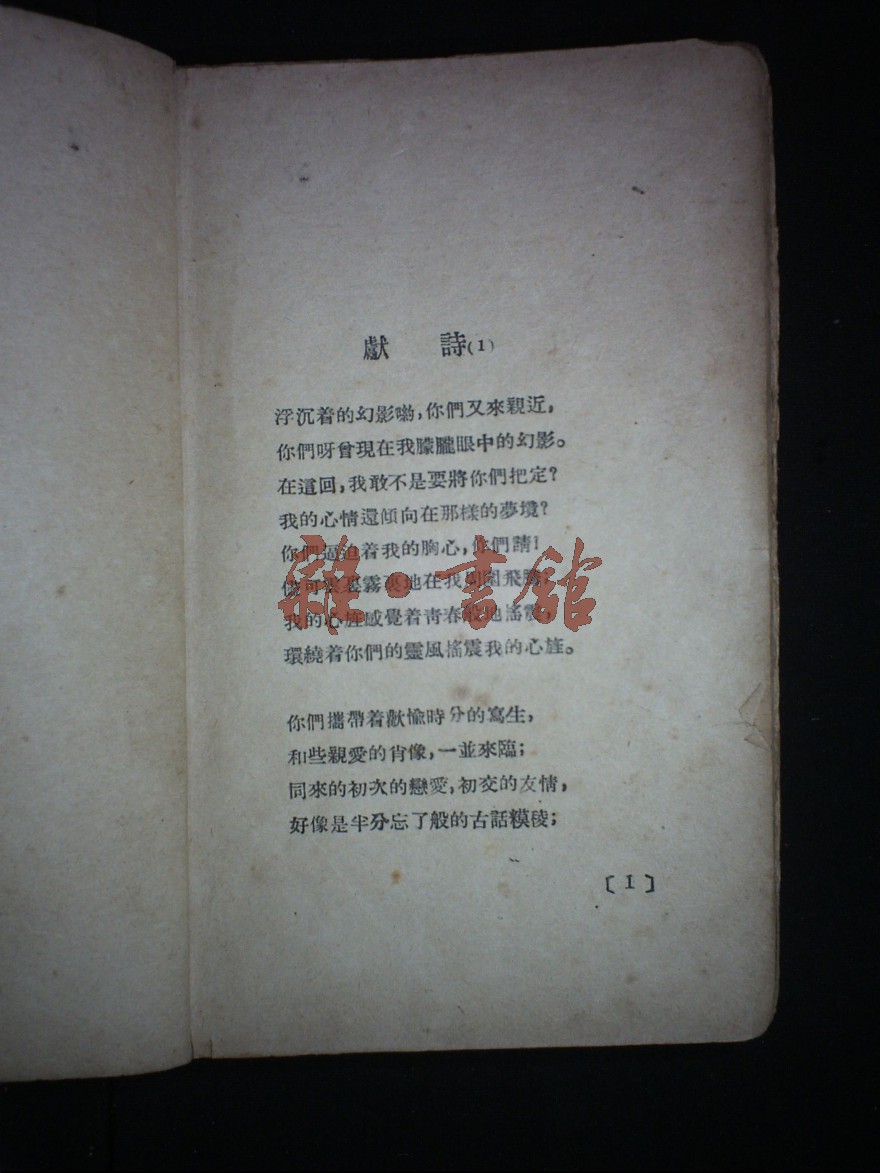 獻 詩(1)
浮沉着的幻影喲,你們又來親近,
你們呀曾現在我朦朧眼中的幻影。
在這回,我敢不是要將你們把定?
我的心情還傾向在那樣的夢境?
你們逼迫着我的胸心,你們請!
儘可雲裏霧裏地在我周圍飛騰;
我的心旌感覺着青春般地搖震,
環繞着你們的靈風搖震我的心旌。
你們攜帶着歡愉時分的寫生,
和些親愛的肖像,一並來臨;
同來的初次的戀愛,初交的友情,
好像是半分忘了般的古話模稜;
〔1〕
雜·書館